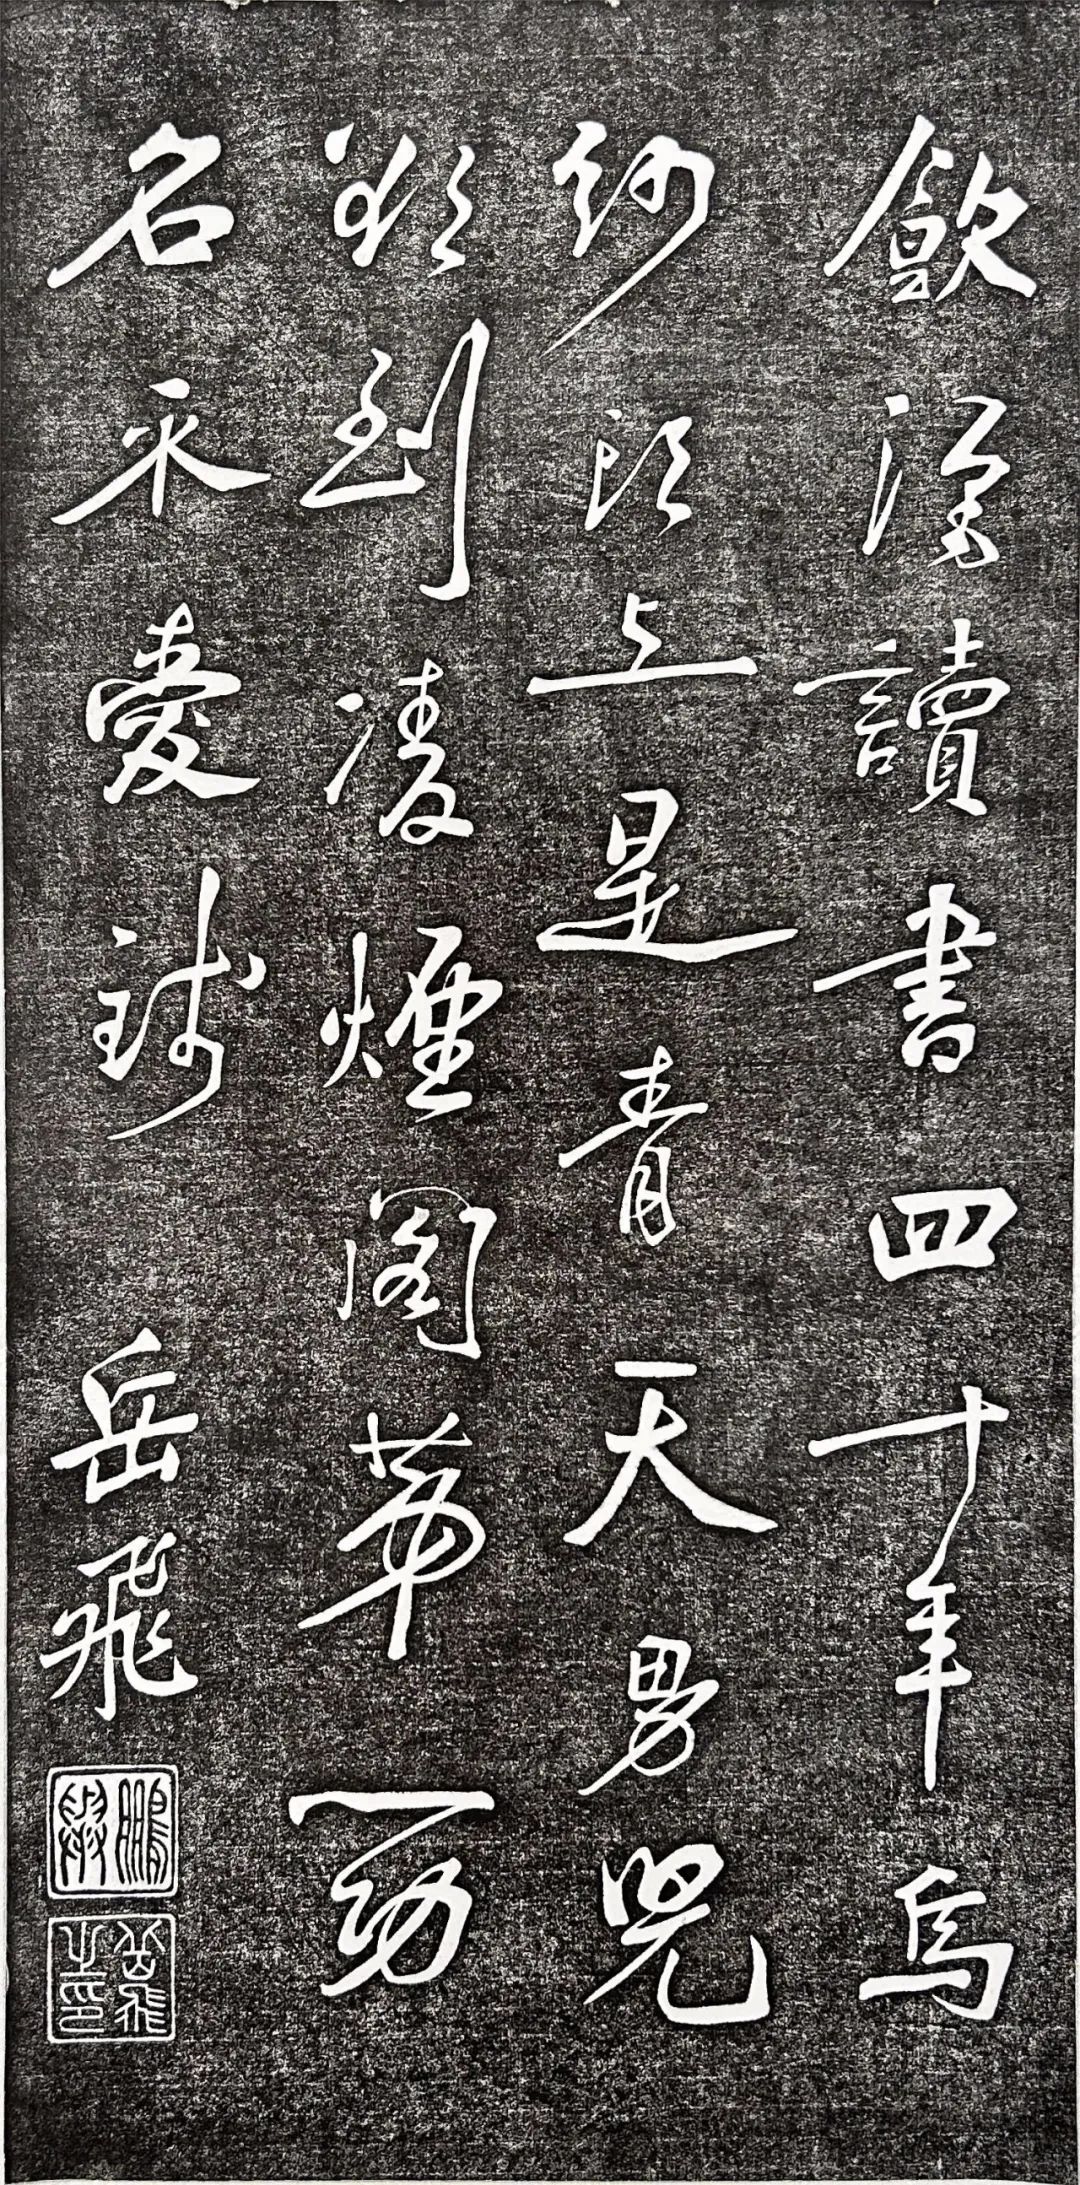 飲讀書四十年烏
紗頭上是青天男兒
欲到凌煙閣第一功
名不愛錢 岳飛
鵬舉
岳飛之印